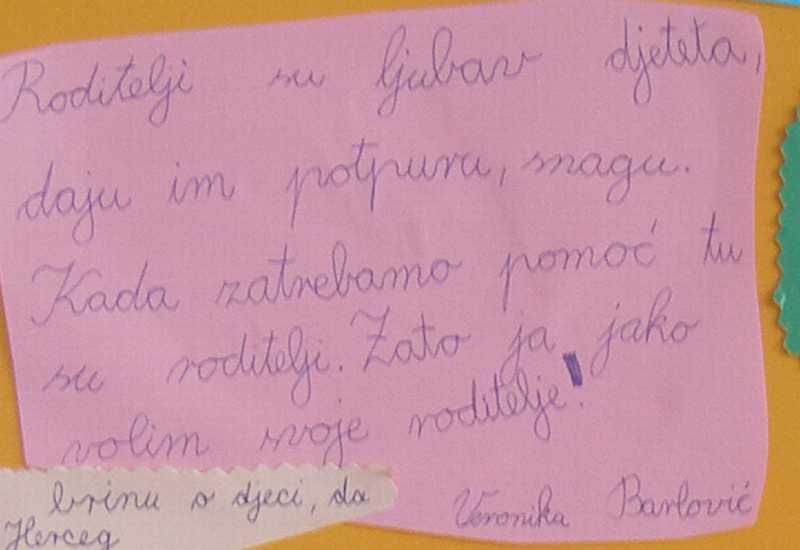 Roditelji su ljubav djeteta,
daju im potpuru, snagu.
Kada zatrebamo pomoć tu
su roditelji. Zato ja jako
volim svoje roditelje!
Veronika Barlović
brinu o djeci, da
Herceg